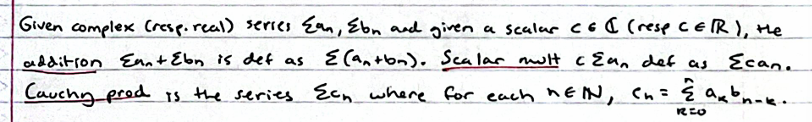 Given complex (resp. real) series Σan, Σbn and given a scalar c ∈ ℂ (resp c ∈ ℝ), the
addition Σan + Σbn is def as Σ(an+bn). Scalar mult cΣan def as Σcan.
Cauchy prod is the series Σcn where for each n∈ℕ, cn = Σ_{k=0}^{n} a_k b_{n-k}.